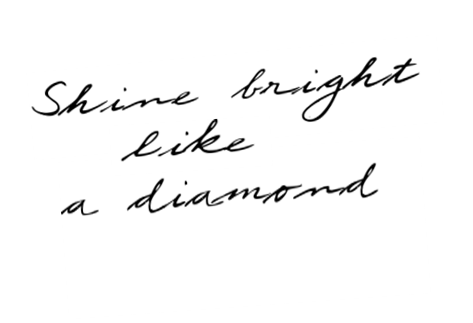 Shine bright
like
a diamond